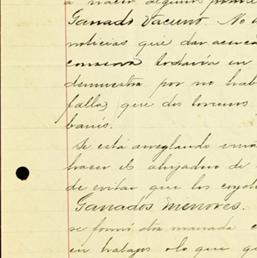 a nacer algun
Ganado Vacuno. No
noticias que dar acerca
conserva todavia en
demuestra por no hab
falla, que dos toreros
banés.
Se está arreglando
hacer el ahijadero de
de evitar que los coyot
Ganados menores.
se formó otra manada
en trabajos o lo que qu